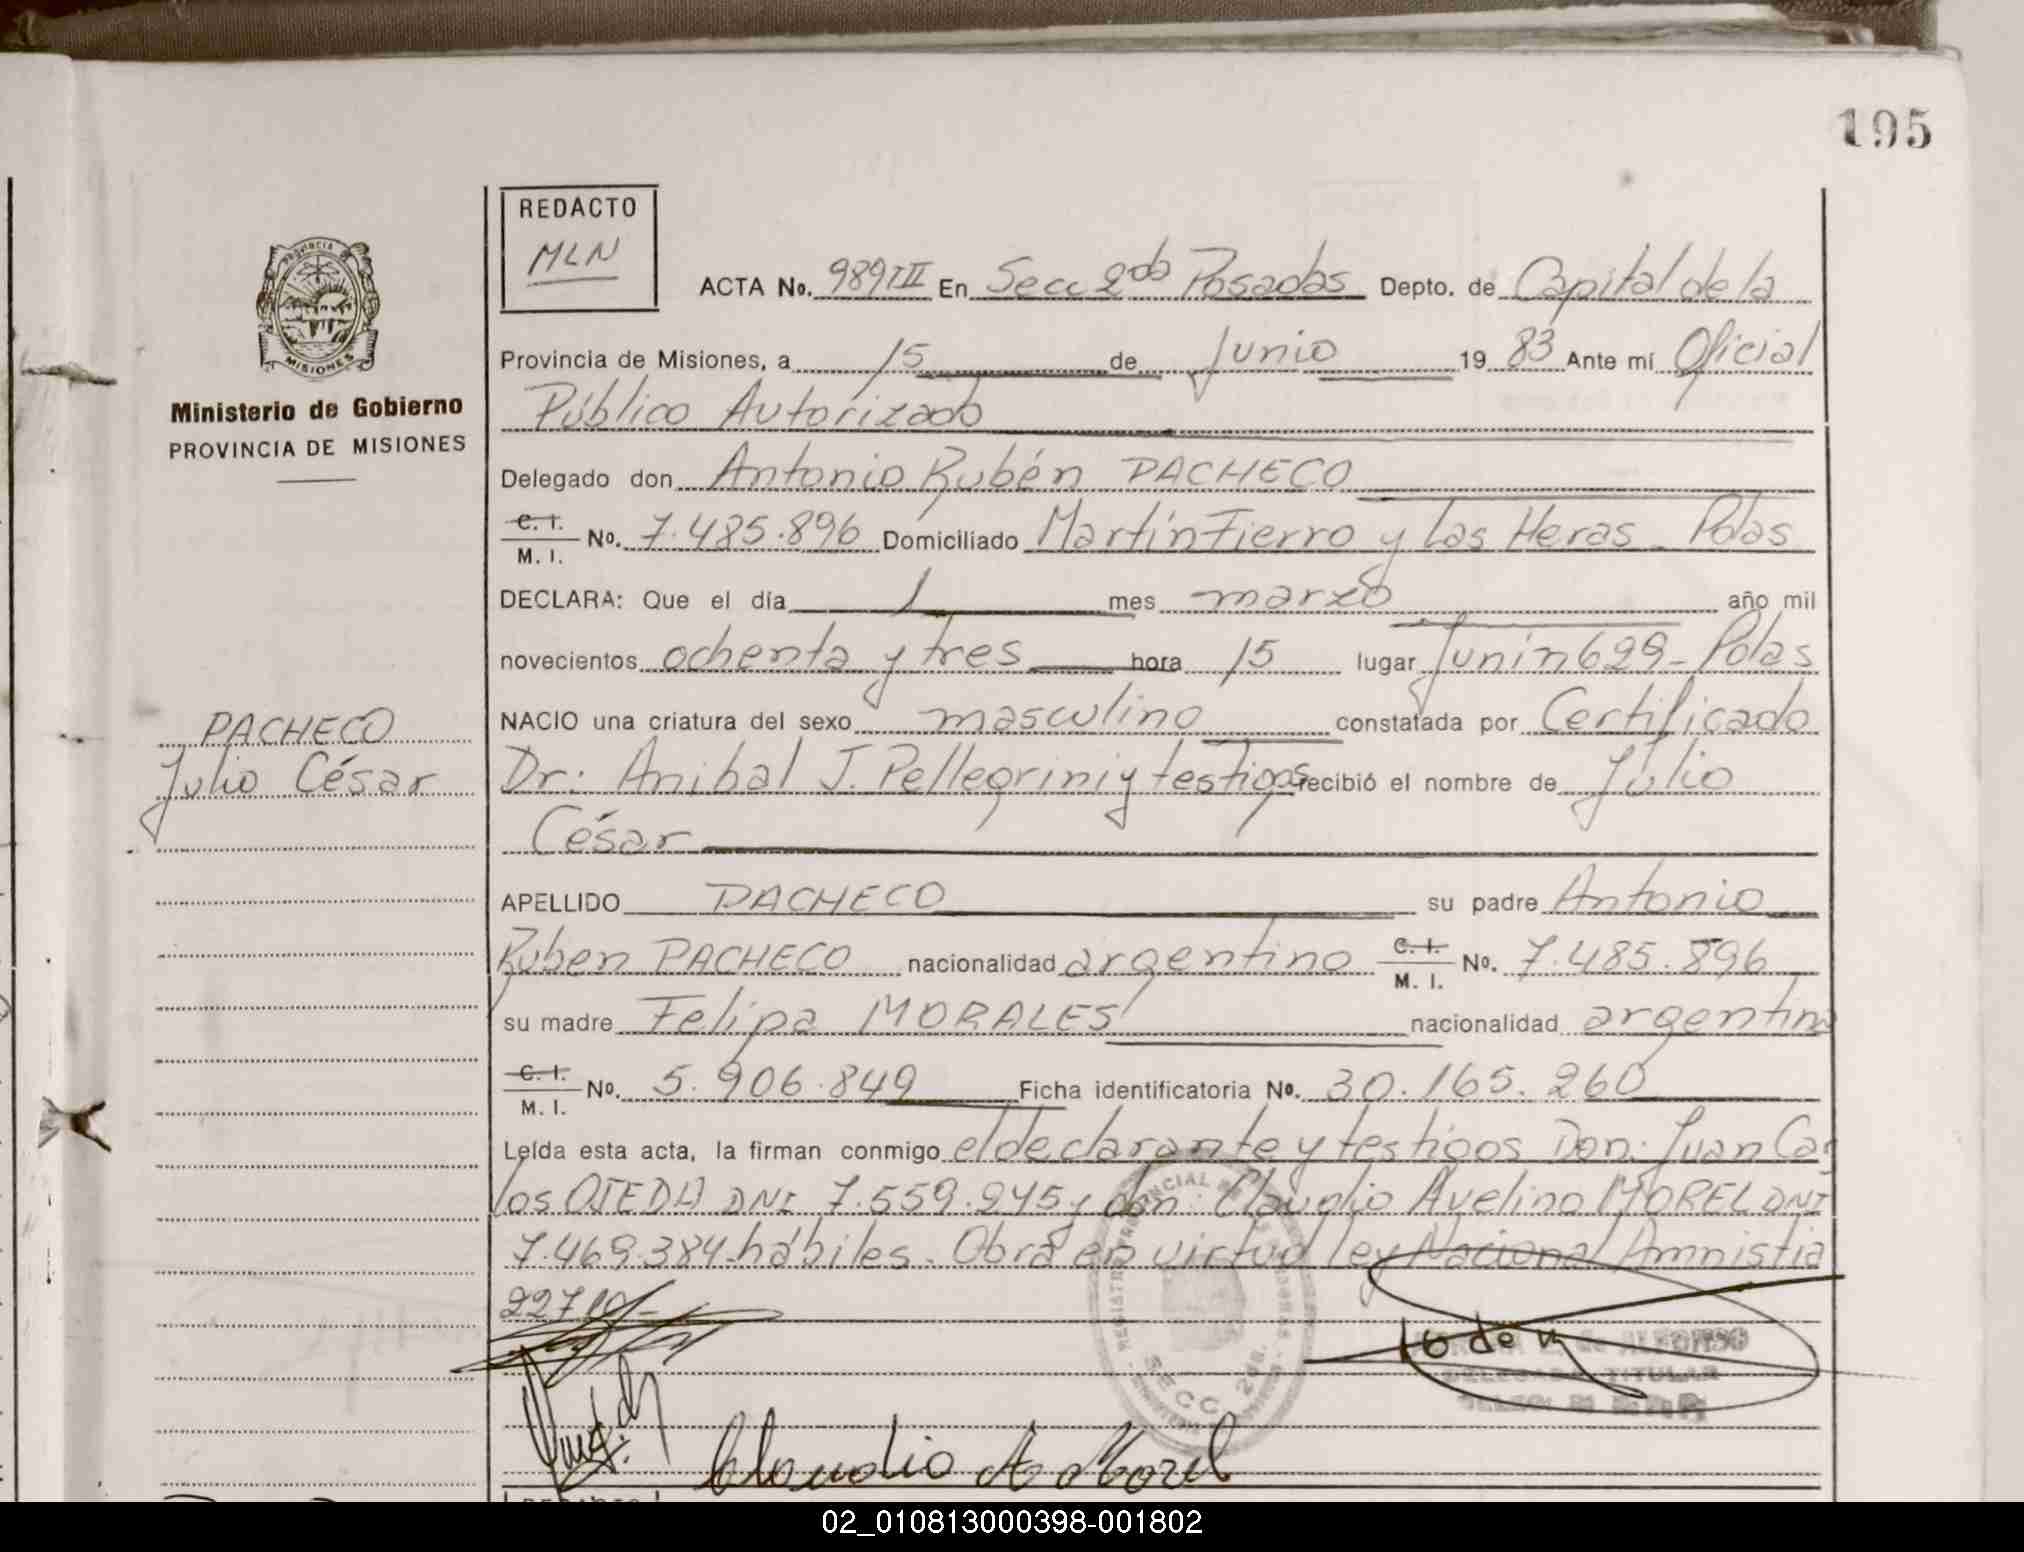 195
REDACTO
MLN
Provincia
MISIONES
Ministerio de Gobierno
PROVINCIA DE MISIONES
ACTA No. 989 III En Secc 2da Posadas Depto. de Capital de la
Provincia de Misiones, a 15 de Junio 19 83 Ante mí Oficial
Público Autorizado
Delegado don Antonio Rubén PACHECO
C. I. / M. I. No. 7.485.896 Domiciliado Martín Fierro y Las Heras - Pdas
DECLARA: Que el día 1 mes marzo año mil
novecientos ochenta y tres hora 15 lugar Junín 629 - Pdas
PACHECO
Julio César
NACIO una criatura del sexo masculino constatada por Certificado
Dr: Anibal J. Pellegrini y testigos recibió el nombre de Julio
César
APELLIDO PACHECO su padre Antonio
Ruben PACHECO nacionalidad argentino C. I. / M. I. No. 7.485.896
su madre Felipa MORALES nacionalidad argentina
C. I. / M. I. No. 5.906.849 Ficha identificatoria No. 30.165.260
Leída esta acta, la firman conmigo el declarante y testigos Don: Juan Car
los OJEDA DNI 7.559.245 y don: Claudio Avelino MOREL DNI
7.469.384 hábiles. Obra en virtud ley Nacional Amnistia
22710/-
SECC. 2da.
DE ALFONSO
DELEGADA TITULAR
Claudio A Morel
02_010813000398-001802